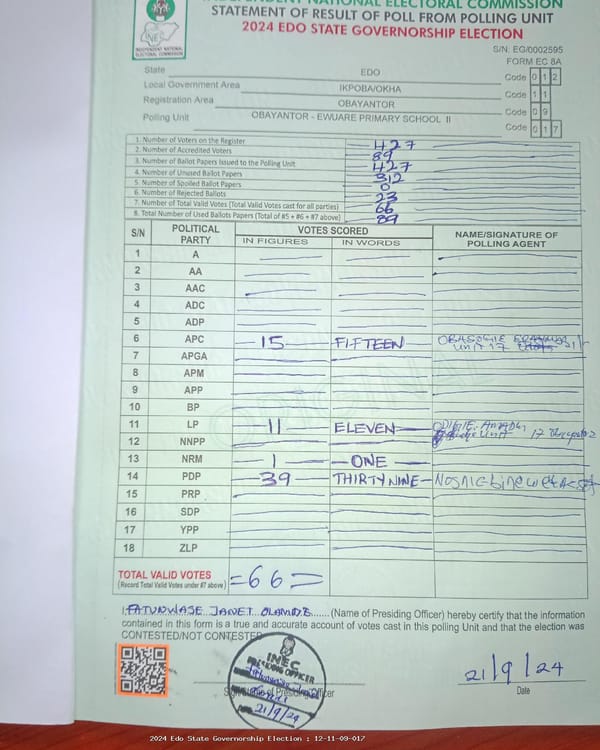 INDEPENDENT NATIONAL ELECTORAL COMMISSION
STATEMENT OF RESULT OF POLL FROM POLLING UNIT
2024 EDO STATE GOVERNORSHIP ELECTION
INEC
INDEPENDENT NATIONAL ELECTORAL COMMISSION
S/N: EG/0002595
FORM EC 8A
State EDO Code 0 1 2
Local Government Area IKPOBA/OKHA Code 1 1
Registration Area OBAYANTOR Code 0 9
Polling Unit OBAYANTOR - EWUARE PRIMARY SCHOOL II Code 0 1 7
1. Number of Voters on the Register 427
2. Number of Accredited Voters 89
3. Number of Ballot Papers Issued to the Polling Unit 427
4. Number of Unused Ballot Papers 312
5. Number of Spoiled Ballot Papers 0
6. Number of Rejected Ballots 23
7. Number of Total Valid Votes (Total Valid Votes cast for all parties) 66
8. Total Number of Used Ballots Papers (Total of #5 + #6 + #7 above) 89
S/N POLITICAL PARTY VOTES SCORED NAME/SIGNATURE OF POLLING AGENT
IN FIGURES IN WORDS
1 A
2 AA
3 AAC
4 ADC
5 ADP
6 APC 15 FIFTEEN
UNIT 17
7 APGA
8 APM
9 APP
10 BP
11 LP 11 ELEVEN
Unit 17
12 NNPP
13 NRM 1 ONE
14 PDP 39 THIRTYNINE
15 PRP
16 SDP
17 YPP
18 ZLP
TOTAL VALID VOTES =66=
(Record Total Valid Votes under #7 above)
I, FATUNWASE JANET OLAMIDE ...... (Name of Presiding Officer) hereby certify that the information
contained in this form is a true and accurate account of votes cast in this polling Unit and that the election was
CONTESTED/NOT CONTESTED
INEC
PRESIDING OFFICER
21/9/24
Signature of Presiding Officer
21/9/24
Date
2024 Edo State Governorship Election : 12-11-09-017